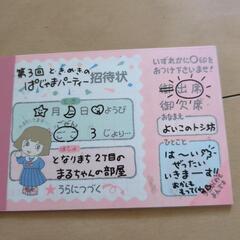 第3回 ときめきの
ぱじゃまパーティー招待状
月 日 ようび
ごぜん
3じより…
となりまち2丁目の
まるちゃんの部屋
うらにつづく
いずれかに〇印を
おつけ下さいませ!
出席
御欠席
おなまえ
よいこのトシ坊
ひとこと
は〜い
ぜったい
いきまーす!!
おかしも
もってくね